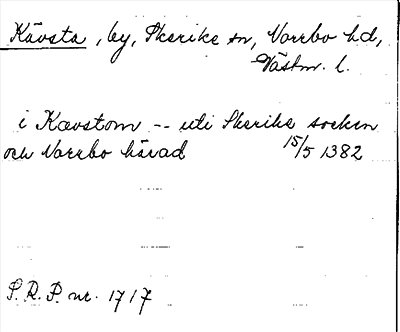 Kävsta, by, Skerike sn, Norrbo hd,
Västm. l.
i Kævstom -- uti Skerike socken
och Norrbo härad 15/5 1382
S. R. P. nr. 1717